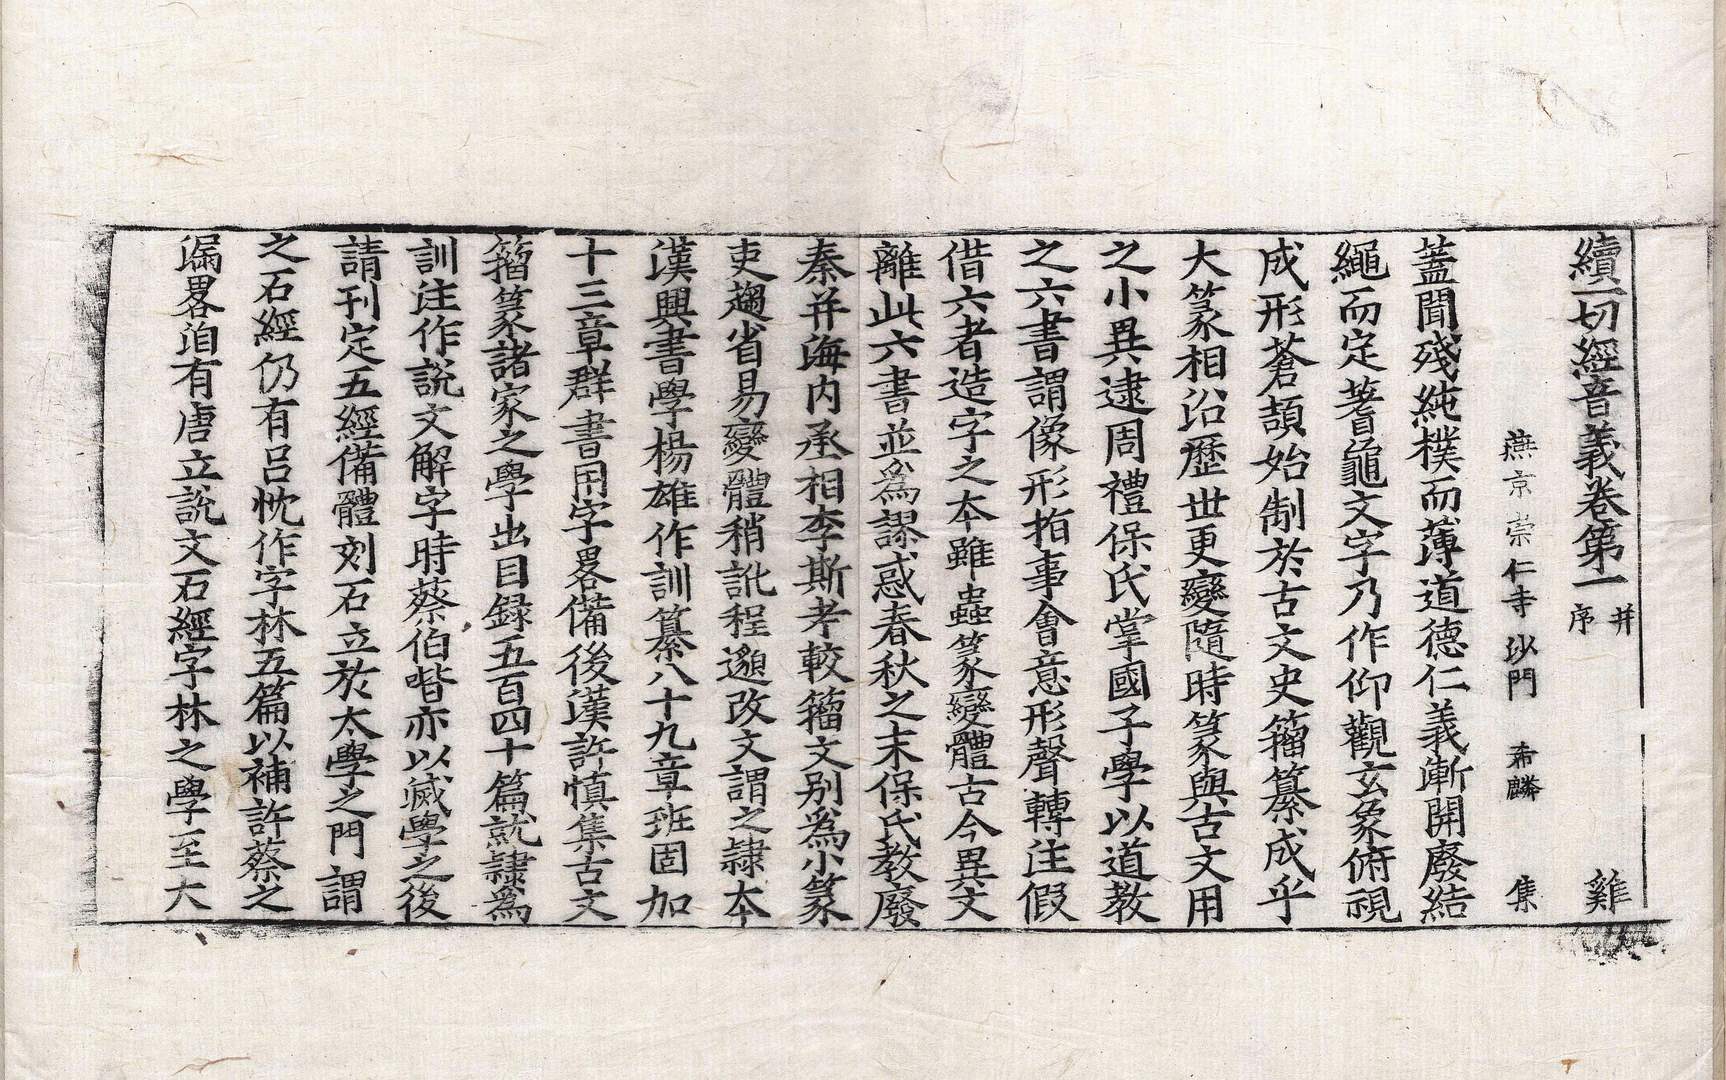 續一切經音義卷第一 并序 雞
燕京崇仁寺沙門 希麟 集
蓋聞殘純樸而薄道德仁義漸開廢結
繩而定蓍龜文字乃作仰觀玄象俯視
成形蒼頡始制於古文史籀纂成乎
大篆相沿歷世更變隨時篆與古文用
之小異逮周禮保氏掌國子學以道教
之六書謂像形指事會意形聲轉注假
借六者造字之本雖蟲篆變體古今異文
離此六書並為謬惑春秋之末保氏教廢
秦并海内丞相李斯考較籀文别為小篆
吏趨省易變體稍訛程邈改文謂之隸本
漢興書學楊雄作訓纂八十九章班固加
十三章群書用字畧備後漢許慎集古文
籀篆諸家之學出目録五百四十篇就隸為
訓注作説文解字時蔡伯喈亦以滅學之後
請刊定五經備體刻石立於太學之門謂
之石經仍有吕忱作字林五篇以補許蔡之
漏畧洎有唐立説文石經字林之學至大